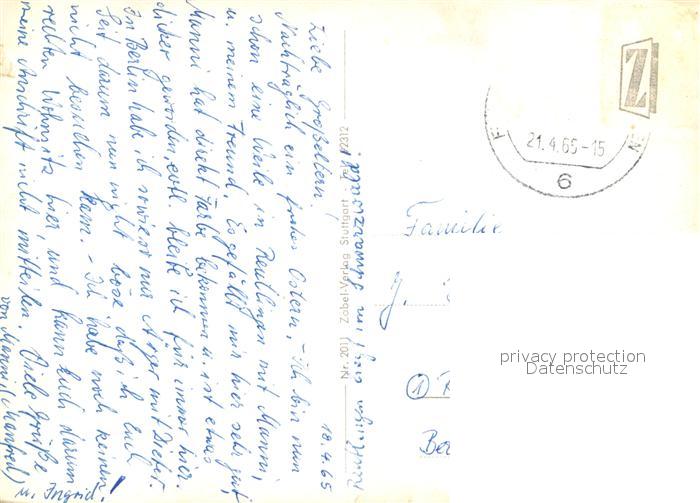 18.4.65
Liebe Großeltern!
Nachträglich ein frohes Ostern, - Ich bin nun
schon eine Weile in Reutlingen mit Manni,
u. meinem Freund. Es gefällt mir hier sehr gut,
Manni hat direkt Farbe bekommen u. ist etwas
dicker geworden, evtl. bleibe ich für immer hier.
In Berlin habe ich sowieso nur Ärger mit Dieter.
Seit darum nun nicht böse daß ich Euch
nicht besuchen kam. - Ich habe noch keinen
rechten Wohnsitz hier, und kann Euch darum
meine Anschrift nicht mitteilen. Viele Grüße
von Manni (Manfred) u. Ingrid!
Reutlingen im Schwarzwald!
Nr. 2011 Zobel-Verlag Stuttgart
Z
21.4.65-15
6
Familie
J.
1
Ber
privacy protection
Datenschutz